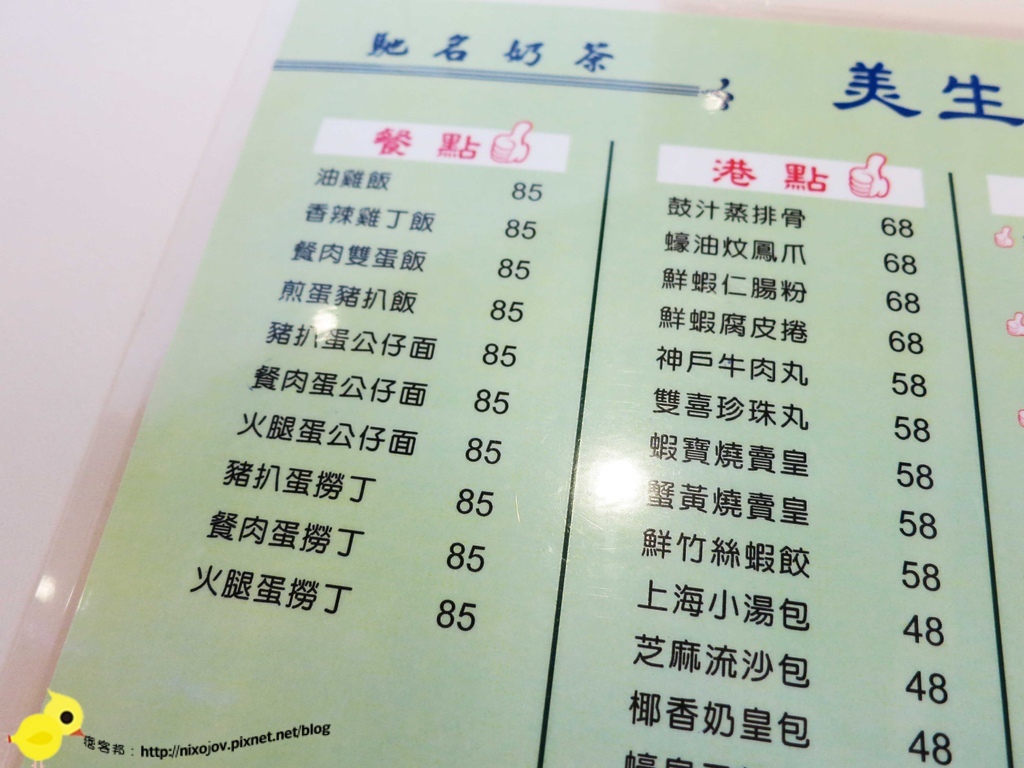 馳名奶茶
美生
餐點
油雞飯 85
香辣雞丁飯 85
餐肉雙蛋飯 85
煎蛋豬扒飯 85
豬扒蛋公仔面 85
餐肉蛋公仔面 85
火腿蛋公仔面 85
豬扒蛋撈丁 85
餐肉蛋撈丁 85
火腿蛋撈丁 85
港點
鼓汁蒸排骨 68
蠔油炆鳳爪 68
鮮蝦仁腸粉 68
鮮蝦腐皮捲 68
神戶牛肉丸 58
雙喜珍珠丸 58
蝦寶燒賣皇 58
蟹黃燒賣皇 58
鮮竹絲蝦餃 58
上海小湯包 48
芝麻流沙包 48
椰香奶皇包 48
痞客邦：http://nixojov.pixnet.net/blog